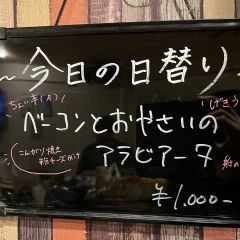 ~今日の日替り~
ちょい辛(大)
ベーコンとおやさいの
アラビアータ
こんがり焼き
粉チーズがけ
¥1,000-